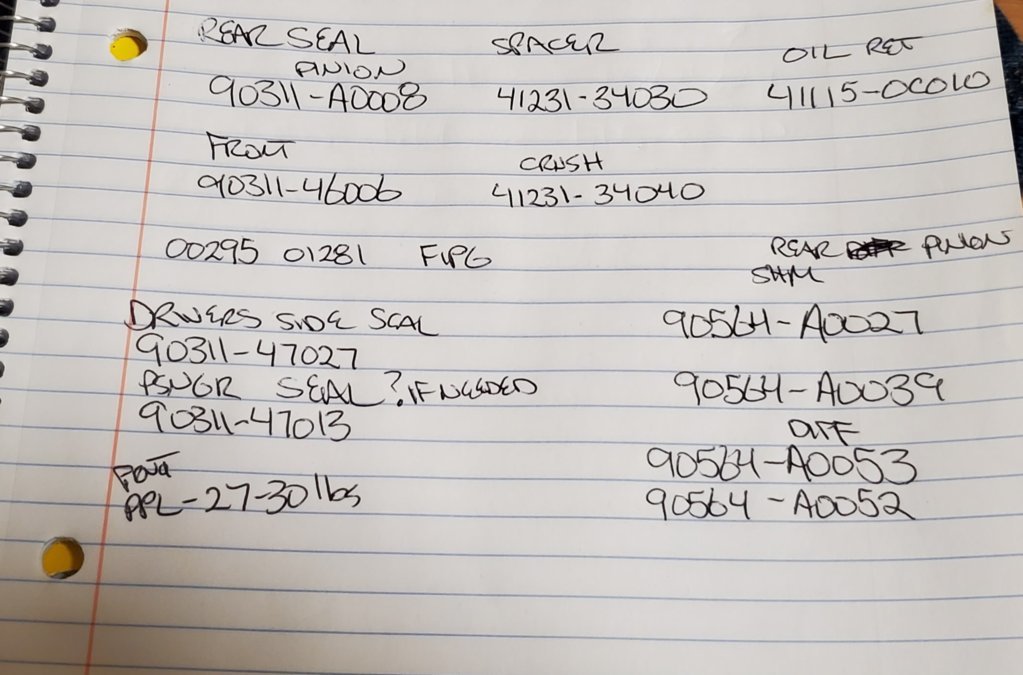 REAR SEAL SPACER OIL RET
PINION
90311-A0008 41231-34030 41115-0C010
FRONT CRUSH
90311-46006 41231-34040
00295 01281 FIPG REAR PINION
SHIM
DRIVERS SIDE SEAL 90564-A0027
90311-47027
PSNGR SEAL? IF NEEDED 90564-A0039
90311-47013 DIFF
90564-A0053
PPL-27-30 lbs 90564-A0052